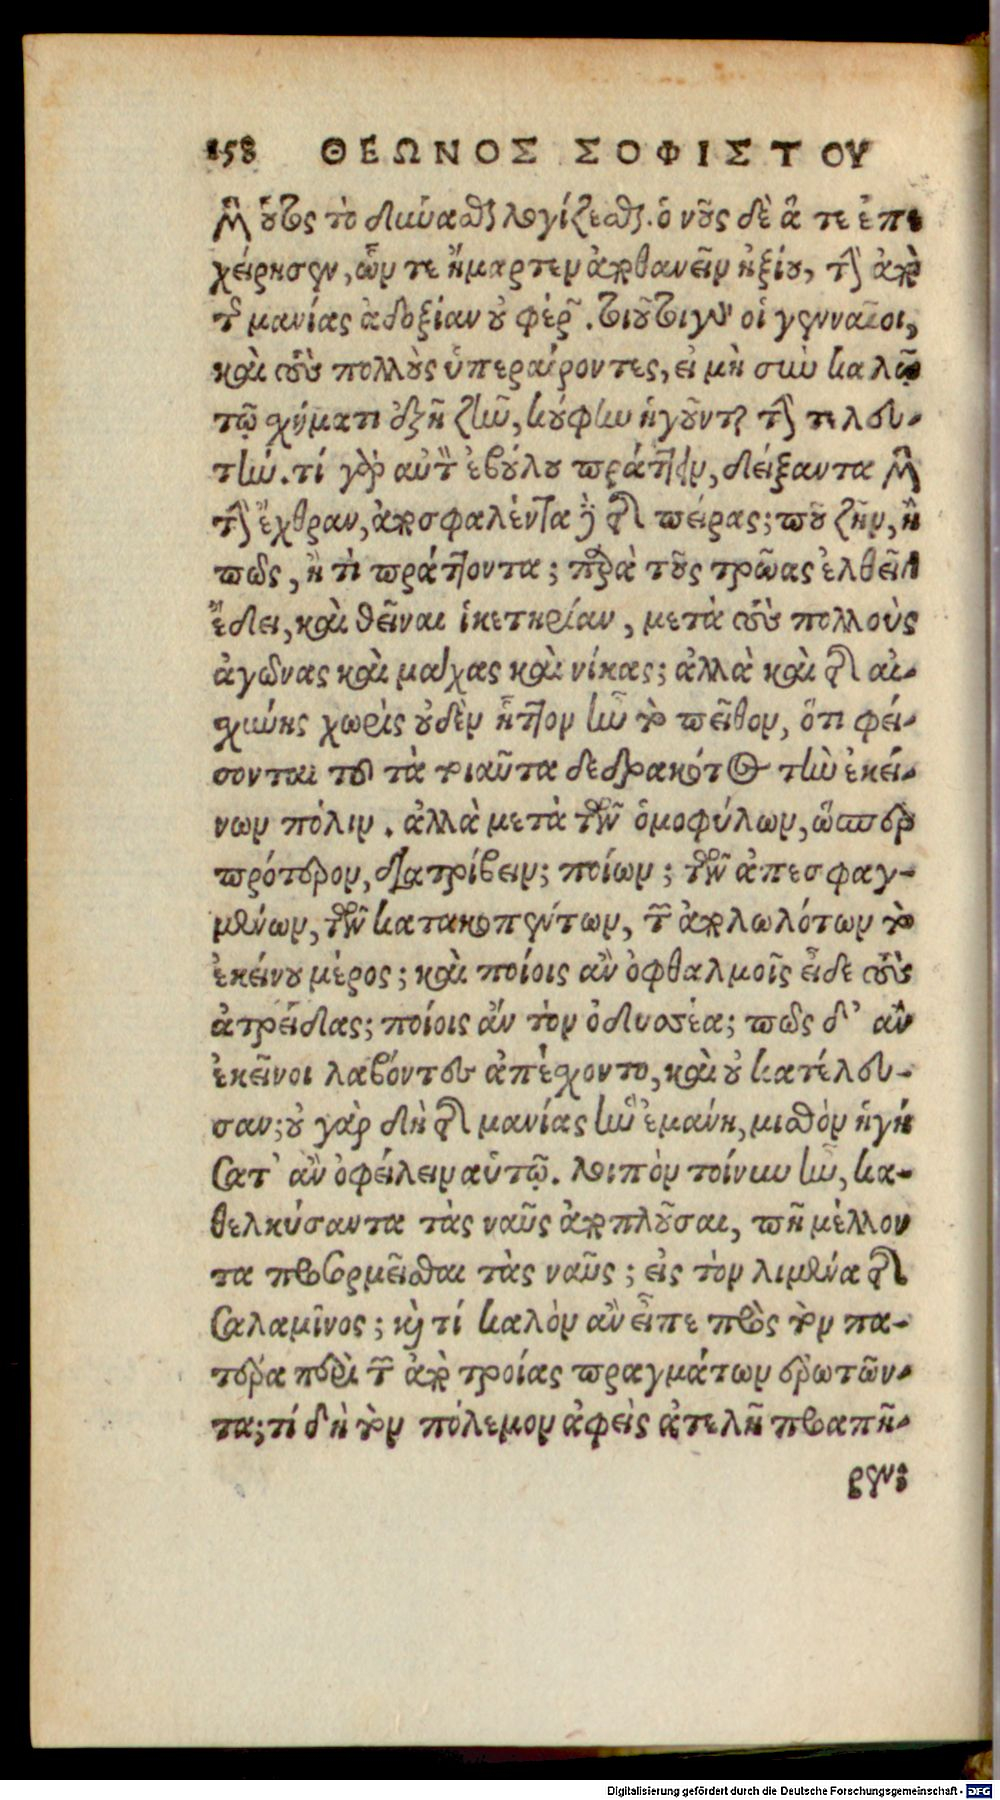 158 ΘΕΩΝΟΣ ΣΟΦΙΣΤΟΥ
τὸ δύνασθαι λογίζεσθαι. ὁ νοῦς δὲ ἅ τε ἐπε
χείρησεν, ὧν τε ἥμαρτεν ἀποθανεῖν ἠξίου, τὴν ἀπὸ
τῆς μανίας ἀδοξίαν οὐ φέρων. τοιοῦτοι γὰρ οἱ γενναῖοι,
καὶ τοὺς πολλοὺς ὑπεραίροντες, εἰ μὴ σὺν καλῷ
τῷ σχήματι ἐξῆ ζῆν, κούφην ἡγοῦνται τὴν τελευ-
τήν. τί γὰρ αὐτὸν ἐβούλου πράττειν, δείξαντα μὲν
τὴν ἔχθραν, ἀποσφαλέντα δὲ τῆς πείρας; ποῦ ζῆν, ἢ
πῶς, ἢ τὶ πράττοντα; παρὰ τοὺς τρῶας ἐλθεῖν
ἔδει, καὶ θεῖναι ἱκετηρίαν, μετὰ τοὺς πολλοὺς
ἀγῶνας καὶ μάχας καὶ νίκας; ἀλλὰ καὶ τῆς αἰ-
σχύνης χωρὶς οὐδὲν ἧττον ἦν τὸ πεῖθον, ὅτι φεί-
σονται τοῦ τὰ τοιαῦτα δεδρακότος τὴν ἐκεί-
νων πόλιν. ἀλλὰ μετὰ τῶν ὁμοφύλων, ὥσπερ
πρότερον, διατρίβειν; ποίων; τῶν ἀπεσφαγ-
μένων, τῶν κατακοπέντων, τῶν ἀπολωλότων τὸ
ἐκείνου μέρος; καὶ ποίοις ἂν ὀφθαλμοῖς εἶδε τοὺς
ἀτρείδας; ποίοις ἂν τὸν ὀδυσσέα; πῶς δ' ἂν
ἐκεῖνοι λαβόντες ἀπέχοντο, καὶ οὐ κατέλευ-
σαν; οὐ γὰρ δὴ τῆς μανίας ἣν ἐμάνη, μισθὸν ἡγή
σατ' ἂν ὀφείλειν αὐτῷ. λοιπὸν τοίνυν ἦν, κα-
θελκύσαντα τὰς ναῦς ἀποπλεῦσαι, πῆ μέλλον
τα προσορμεῖσθαι τὰς ναῦς; εἰς τὸν λιμένα τῆς
Σαλαμῖνος; καὶ τί καλὸν ἂν εἶπε πρὸς τὸν πα-
τέρα περὶ τῶν ἀπὸ τροίας πραγμάτων ἐρωτῶν-
τα; τί δὴ τὸν πόλεμον ἀφεὶς ἀτελῆ προαπῆ-
ρεν;
Digitalisierung gefördert durch die Deutsche Forschungsgemeinschaft - DFG